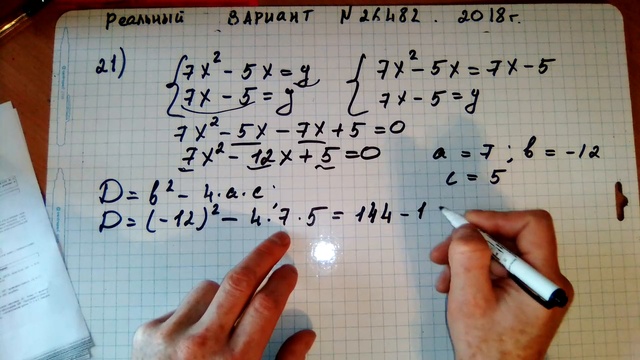 реальный ВАРИАНТ №2L482. 2018г.
21) { 7x² - 5x = y { 7x² - 5x = 7x - 5
7x - 5 = y 7x - 5 = y
7x² - 5x - 7x + 5 = 0
7x² - 12x + 5 = 0 a = 7 ; b = -12
c = 5
D = b² - 4·a·c;
D = (-12)² - 4·7·5 = 144 - 1